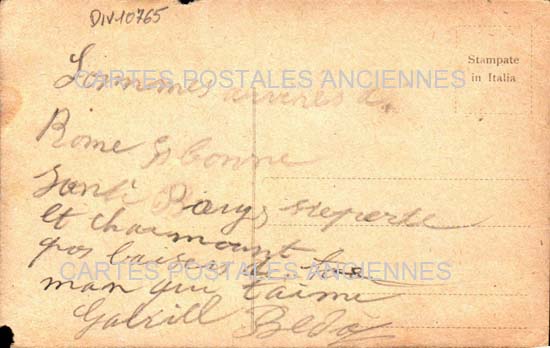 DIV-10765
Stampate
in Italia
Sommes arrivés a
CARTES POSTALES ANCIENNES
Rome bonne
Santé Pays superbe
et charmant
gros baiser de
CARTES POSTALES ANCIENNES
man qui t'aime
Gabrill